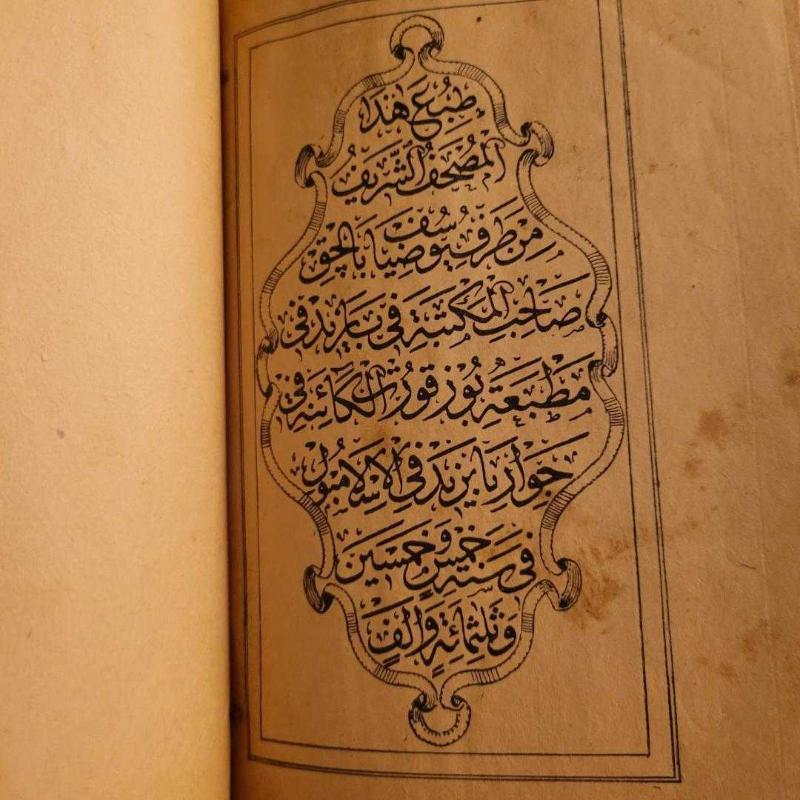 طُبِعَ هٰذَا
الْمُصْحَفُ الشَّرِيفُ
مِنْ طَرَفِ يُوسُفْ ضِيَا بَالِجِقْ
صَاحِبِ الْمَكْتَبَةِ فِي بَايَزِيدْ فِي
مَطْبَعَةِ بُوزْقُورْتْ الْكَائِنَةِ فِي
جَوَارِ بَايَزِيدْ فِي الْاِسْلَامْبُولْ
فِي سَنَةِ خَمْسٍ وَخَمْسِينَ
وَثَلٰثِمِائَةٍ وَاَلْفٍ